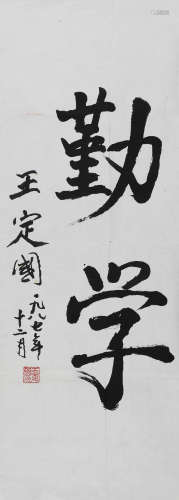 勤学
王定國
一九八七年
十二月